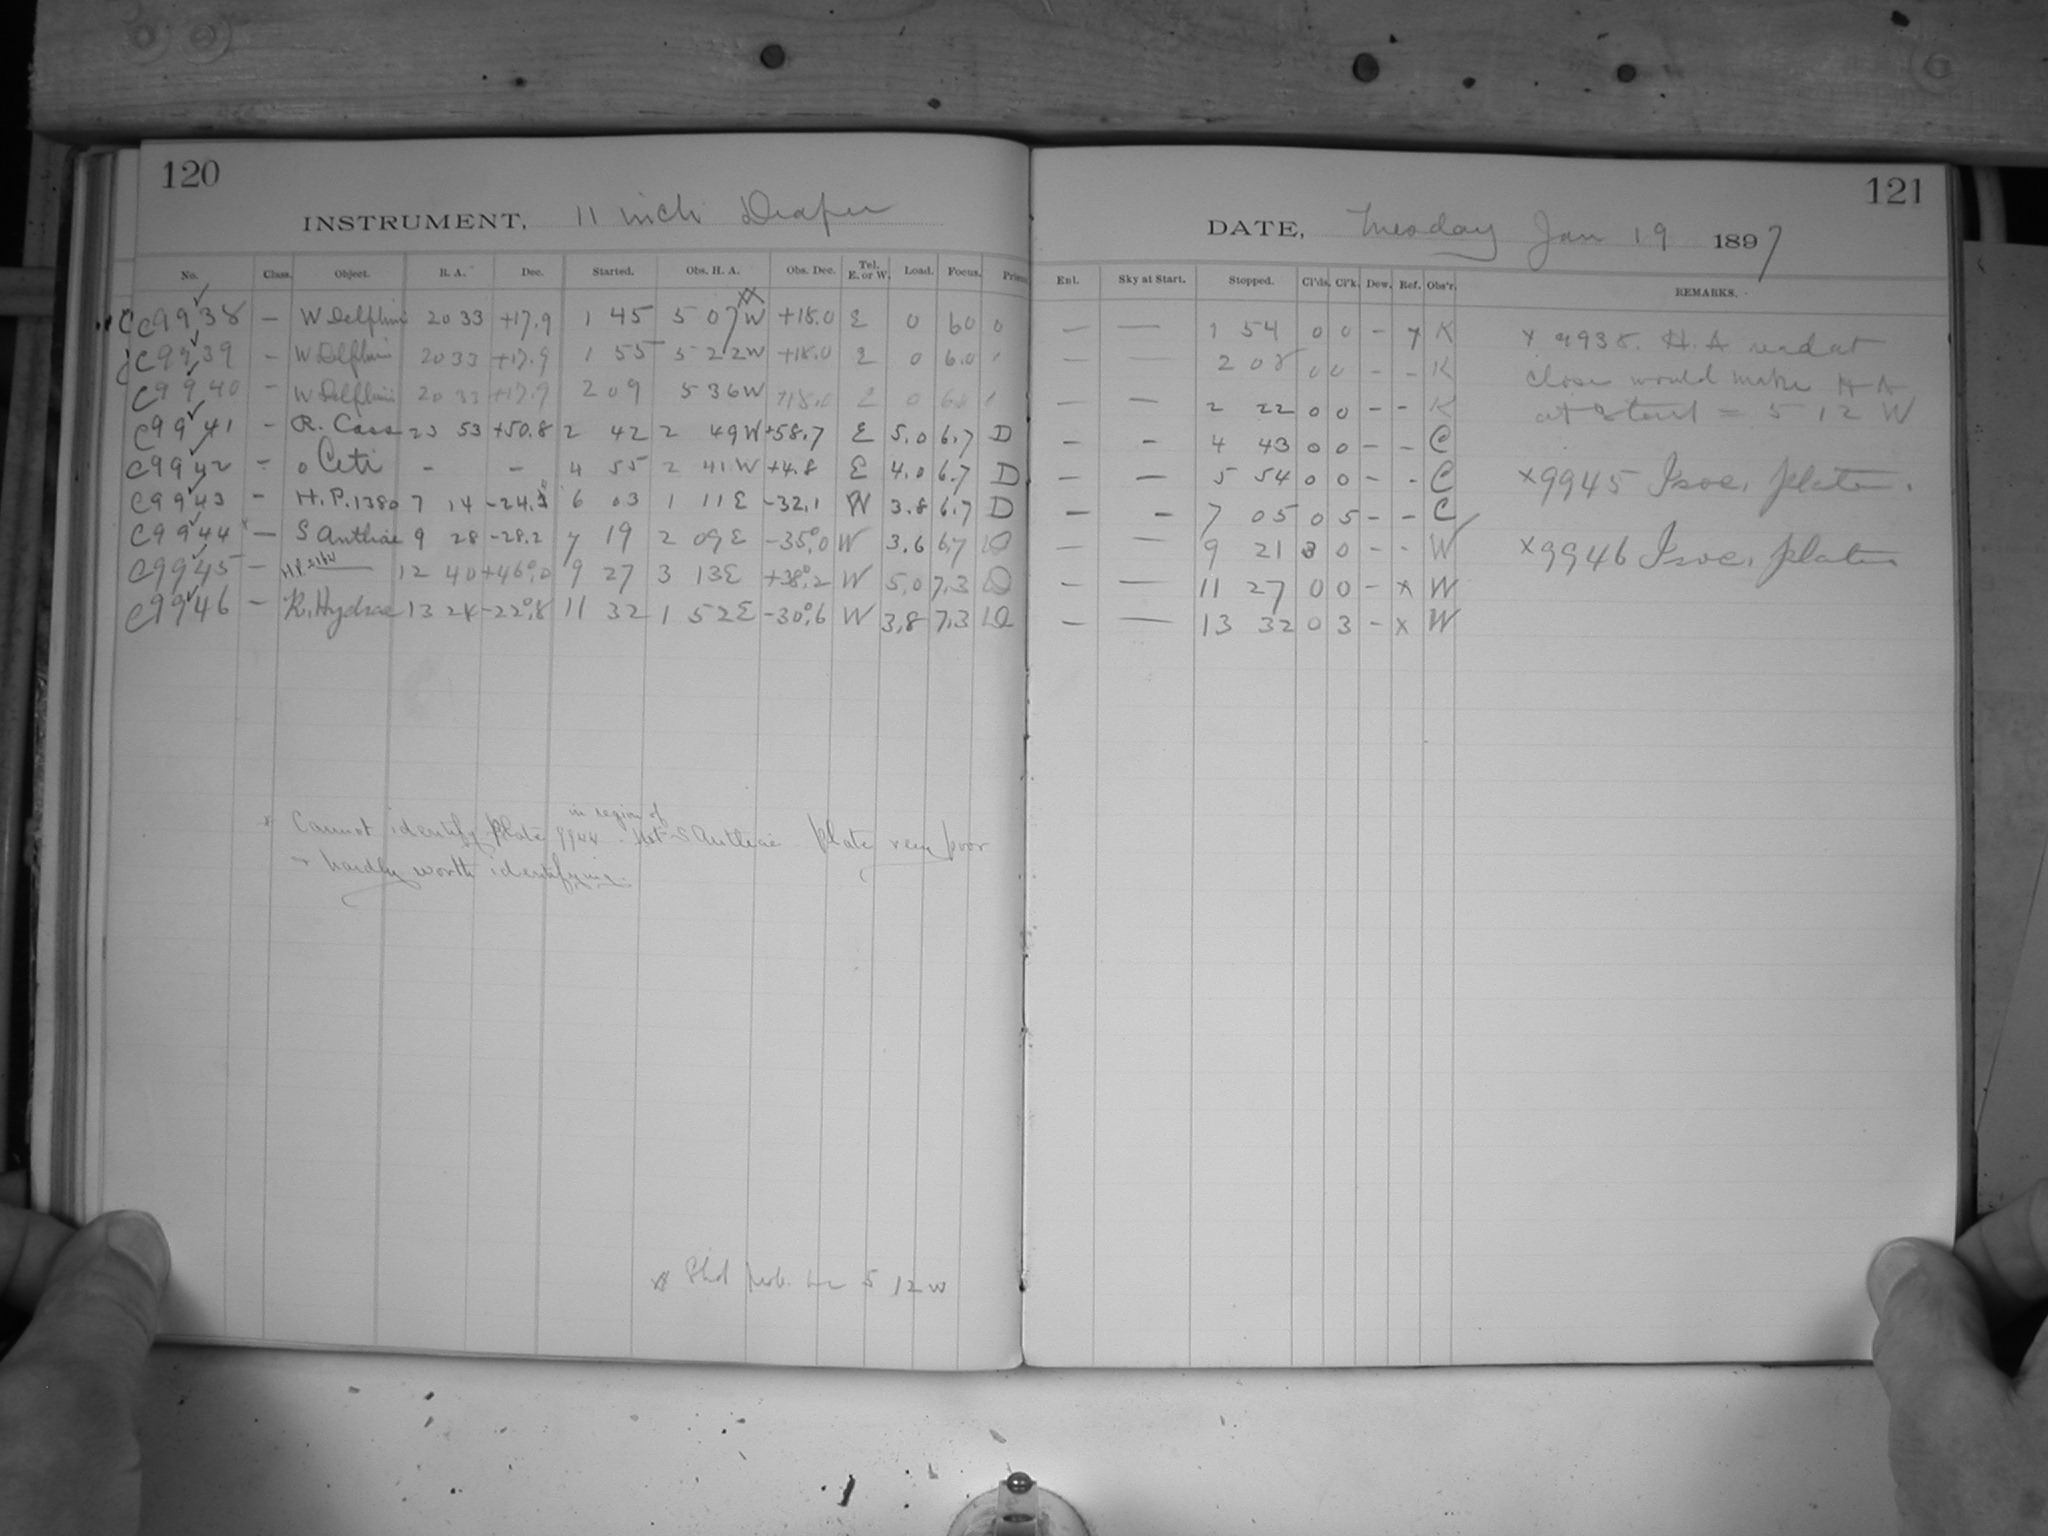 120
INSTRUMENT, 11 inch Draper
No. Class. Object. R. A. Dec. Started. Obs. H. A. Obs. Dec. Tel. E. or W. Load. Focus. Prism
C9938 – W Delphini 20 33 +17.9 1 45 5 07 W +18.0 E 0 60 0
C9939 – W Delphini 20 33 +17.9 1 55 5 22 W +18.0 E 0 6.0
C9940 – W Delphini 20 33 +17.9 2 09 5 36 W +18.0 E 0 6.0
C9941 – R. Cass 23 53 +50.8 2 42 2 49 W +58.7 E 5.0 6.7 D
C9942 – o Ceti – – 4 55 2 41 W +4.8 E 4.0 6.7 D
C9943 – H.P. 1380 7 14 -24. 6 03 1 11 E -32.1 W 3.8 6.7 D
C9944 x – S Antliae 9 28 -28.2 7 19 2 09 E -35.0 W 3.6 6.7 D
C9945 – 12 40 +46°.0 9 27 3 13 E +38°.2 W 5.0 7.3 D
C9946 – R. Hydrae 13 24 -22°.8 11 32 1 52 E -30°.6 W 3.8 7.3 D
in region of
x Cannot identify plate 9944 - Not S Antliae - Plate very poor
hardly worth identifying.
Shd prob. be 5 12 W
121
DATE, Tuesday Jan 19 1897
Enl. Sky at Start. Stopped. Cl'ds. Cl'k. Dew. Ref. Obs'r. REMARKS.
– — 1 54 0 0 – x K x 9938. H. A read at
– — 2 08 0 0 – – K close would make H A
– — 2 22 0 0 – – K at start = 5 12 W
– – 4 43 0 0 – – C
– — 5 54 0 0 – – C x 9945 Isoc. plate.
– – 7 05 0 5 – – C
– — 9 21 3 0 – – W x 9946 Isoc. plate
– — 11 27 0 0 – x W
– — 13 32 0 3 – x W